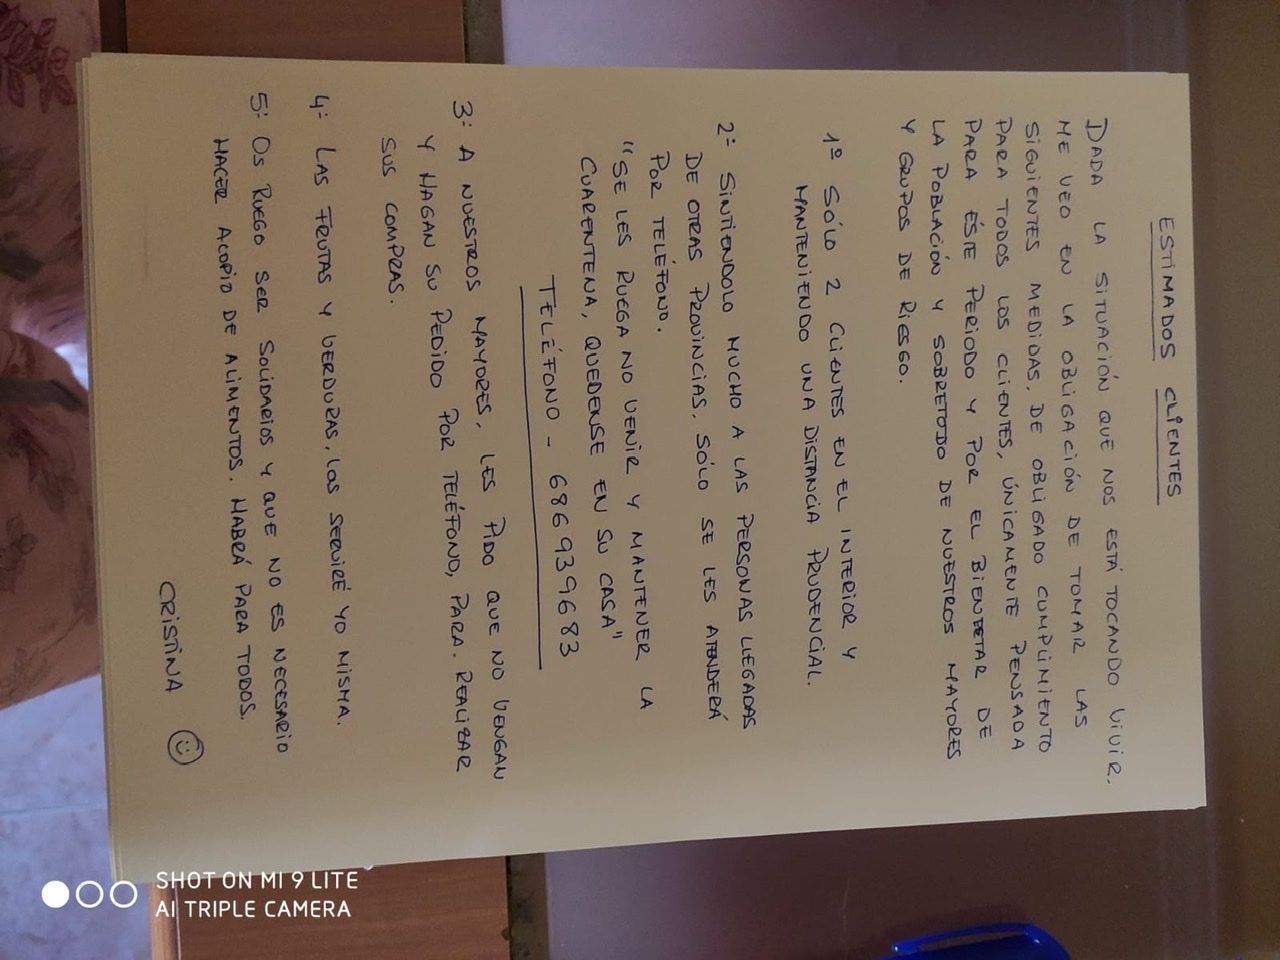 ESTIMADOS CLIENTES
DADA LA SITUACIÓN QUE NOS ESTÁ TOCANDO VIVIR,
ME VEO EN LA OBLIGACIÓN DE TOMAR LAS
SIGUIENTES MEDIDAS, DE OBLIGADO CUMPLIMIENTO
PARA TODOS LOS CLIENTES, ÚNICAMENTE PENSADA
PARA ÉSTE PERIODO Y POR EL BIENESTAR DE
LA POBLACIÓN Y SOBRETODO DE NUESTROS MAYORES
Y GRUPOS DE RIESGO.
1º SÓLO 2 CLIENTES EN EL INTERIOR Y
MANTENIENDO UNA DISTANCIA PRUDENCIAL.
2- SINTIENDOLO MUCHO A LAS PERSONAS LLEGADAS
DE OTRAS PROVINCIAS, SÓLO SE LES ATENDERÁ
POR TELÉFONO.
"SE LES RUEGA NO VENIR Y MANTENER LA
CUARENTENA, QUEDENSE EN SU CASA"
TELÉFONO - 686939683
3- A NUESTROS MAYORES, LES PIDO QUE NO VENGAN
Y HAGAN SU PEDIDO POR TELÉFONO, PARA. REALIZAR
SUS COMPRAS.
4- LAS FRUTAS Y VERDURAS, LOS SERVIRÉ YO MISMA.
5- OS RUEGO SER SOLIDARIOS Y QUE NO ES NECESARIO
HACER ACOPIO DE ALIMENTOS. HABRÁ PARA TODOS.
CRISTINA
SHOT ON MI 9 LITE
AI TRIPLE CAMERA